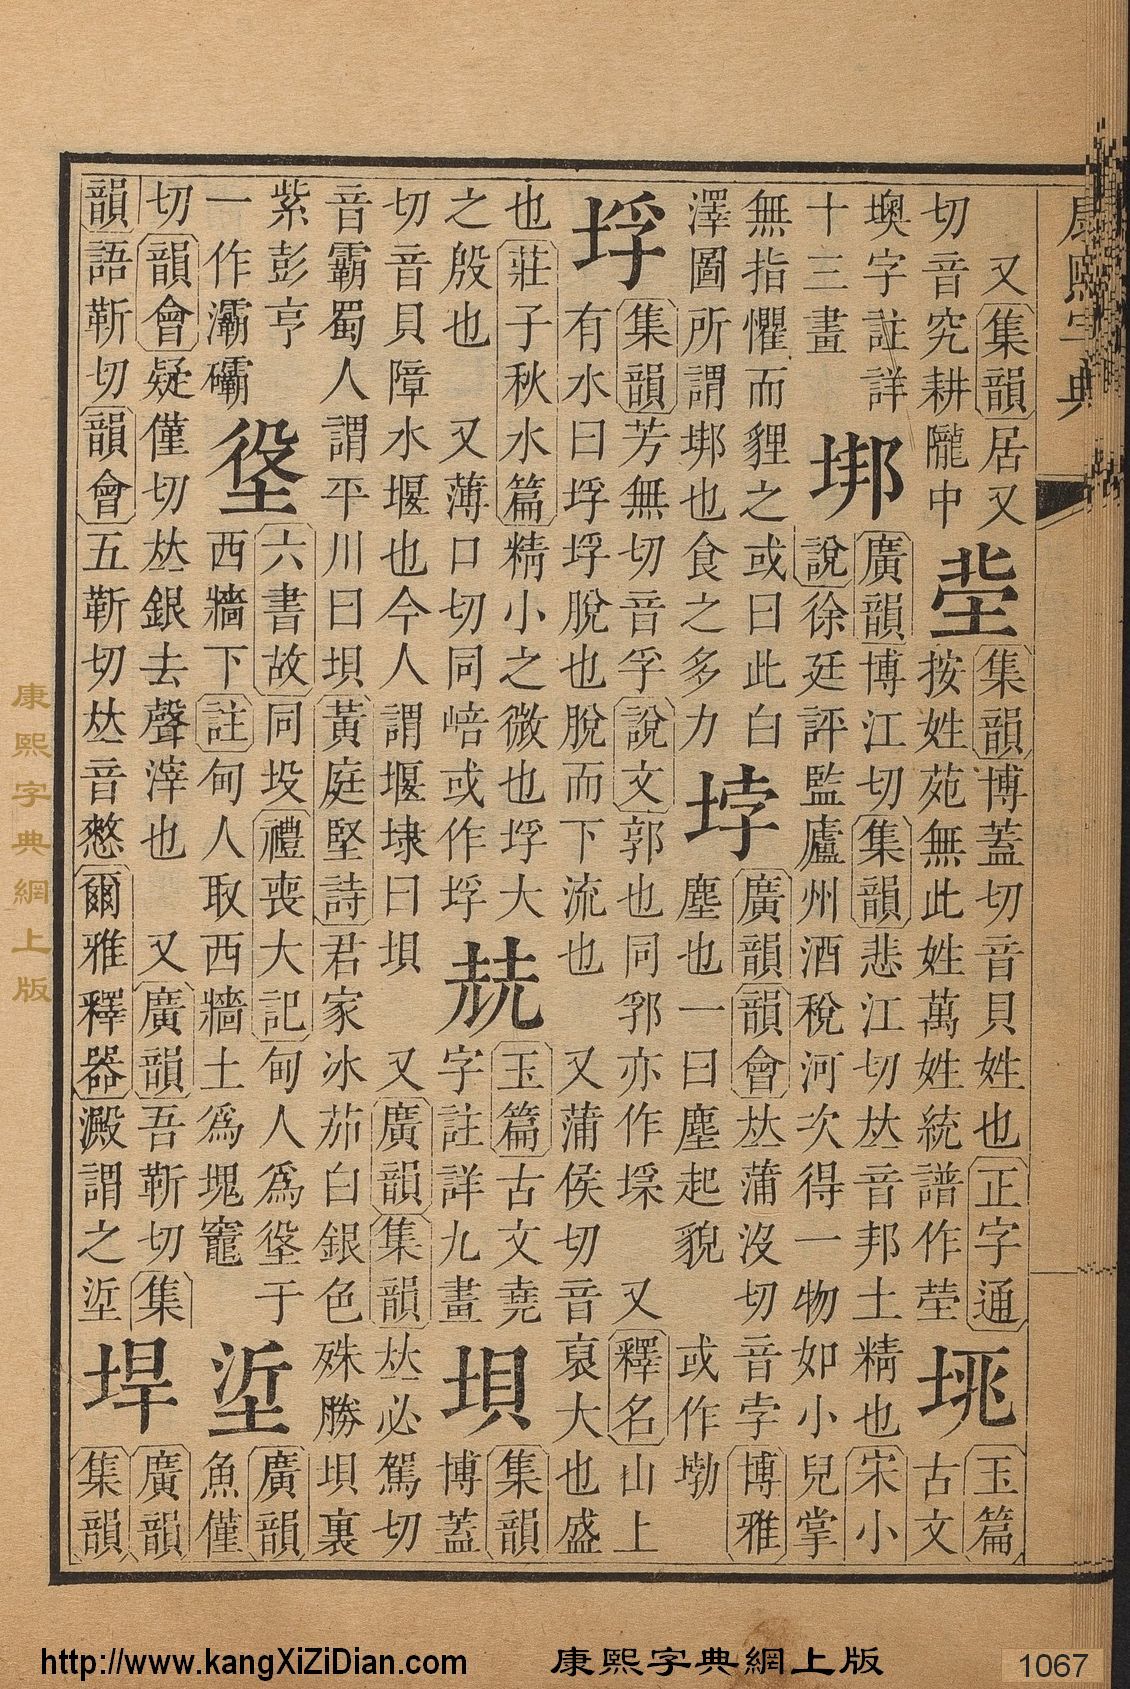 康熙字典
又集韻居又
切音究耕隴中
集韻博蓋切音貝姓也正字通
按姓苑無此姓萬姓統譜作茔
玉篇
古文
墺字註詳
十三畫
垹
廣韻博江切集韻悲江切𠀤音邦土精也宋小
說徐廷評監廬州酒稅河次得一物如小兒掌
無指懼而貍之或曰此白
澤圖所謂垹也食之多力
廣韻韻會𠀤蒲沒切音孛博雅
塵也一曰塵起貌 或作
垺
集韻芳無切音孚說文郭也同郛亦作 又釋名山上
有水曰垺垺脫也脫而下流也 又蒲侯切音裒大也盛
也莊子秋水篇精小之微也垺大
之殷也 又薄口切同㟝或作垺
玉篇古文堯
字註詳九畫
垻
集韻
博蓋
切音貝障水堰也今人謂堰埭曰垻 又廣韻集韻𠀤必駕切
音霸蜀人謂平川曰垻黃庭堅詩君家冰茄白銀色殊勝垻裏
紫彭亨
一作灞䃻
垼
六書故同坄禮喪大記甸人爲垼于
西牆下註甸人取西牆土爲塊竈
垽
廣韻
魚僅
切韻會疑僅切𠀤銀去聲滓也 又廣韻吾靳切集
韻語靳切韻會五靳切𠀤音憗爾雅釋器澱謂之垽
垾
廣韻
集韻
康熙字典網上版
http://www.kangXiZiDian.com
康熙字典網上版
1067